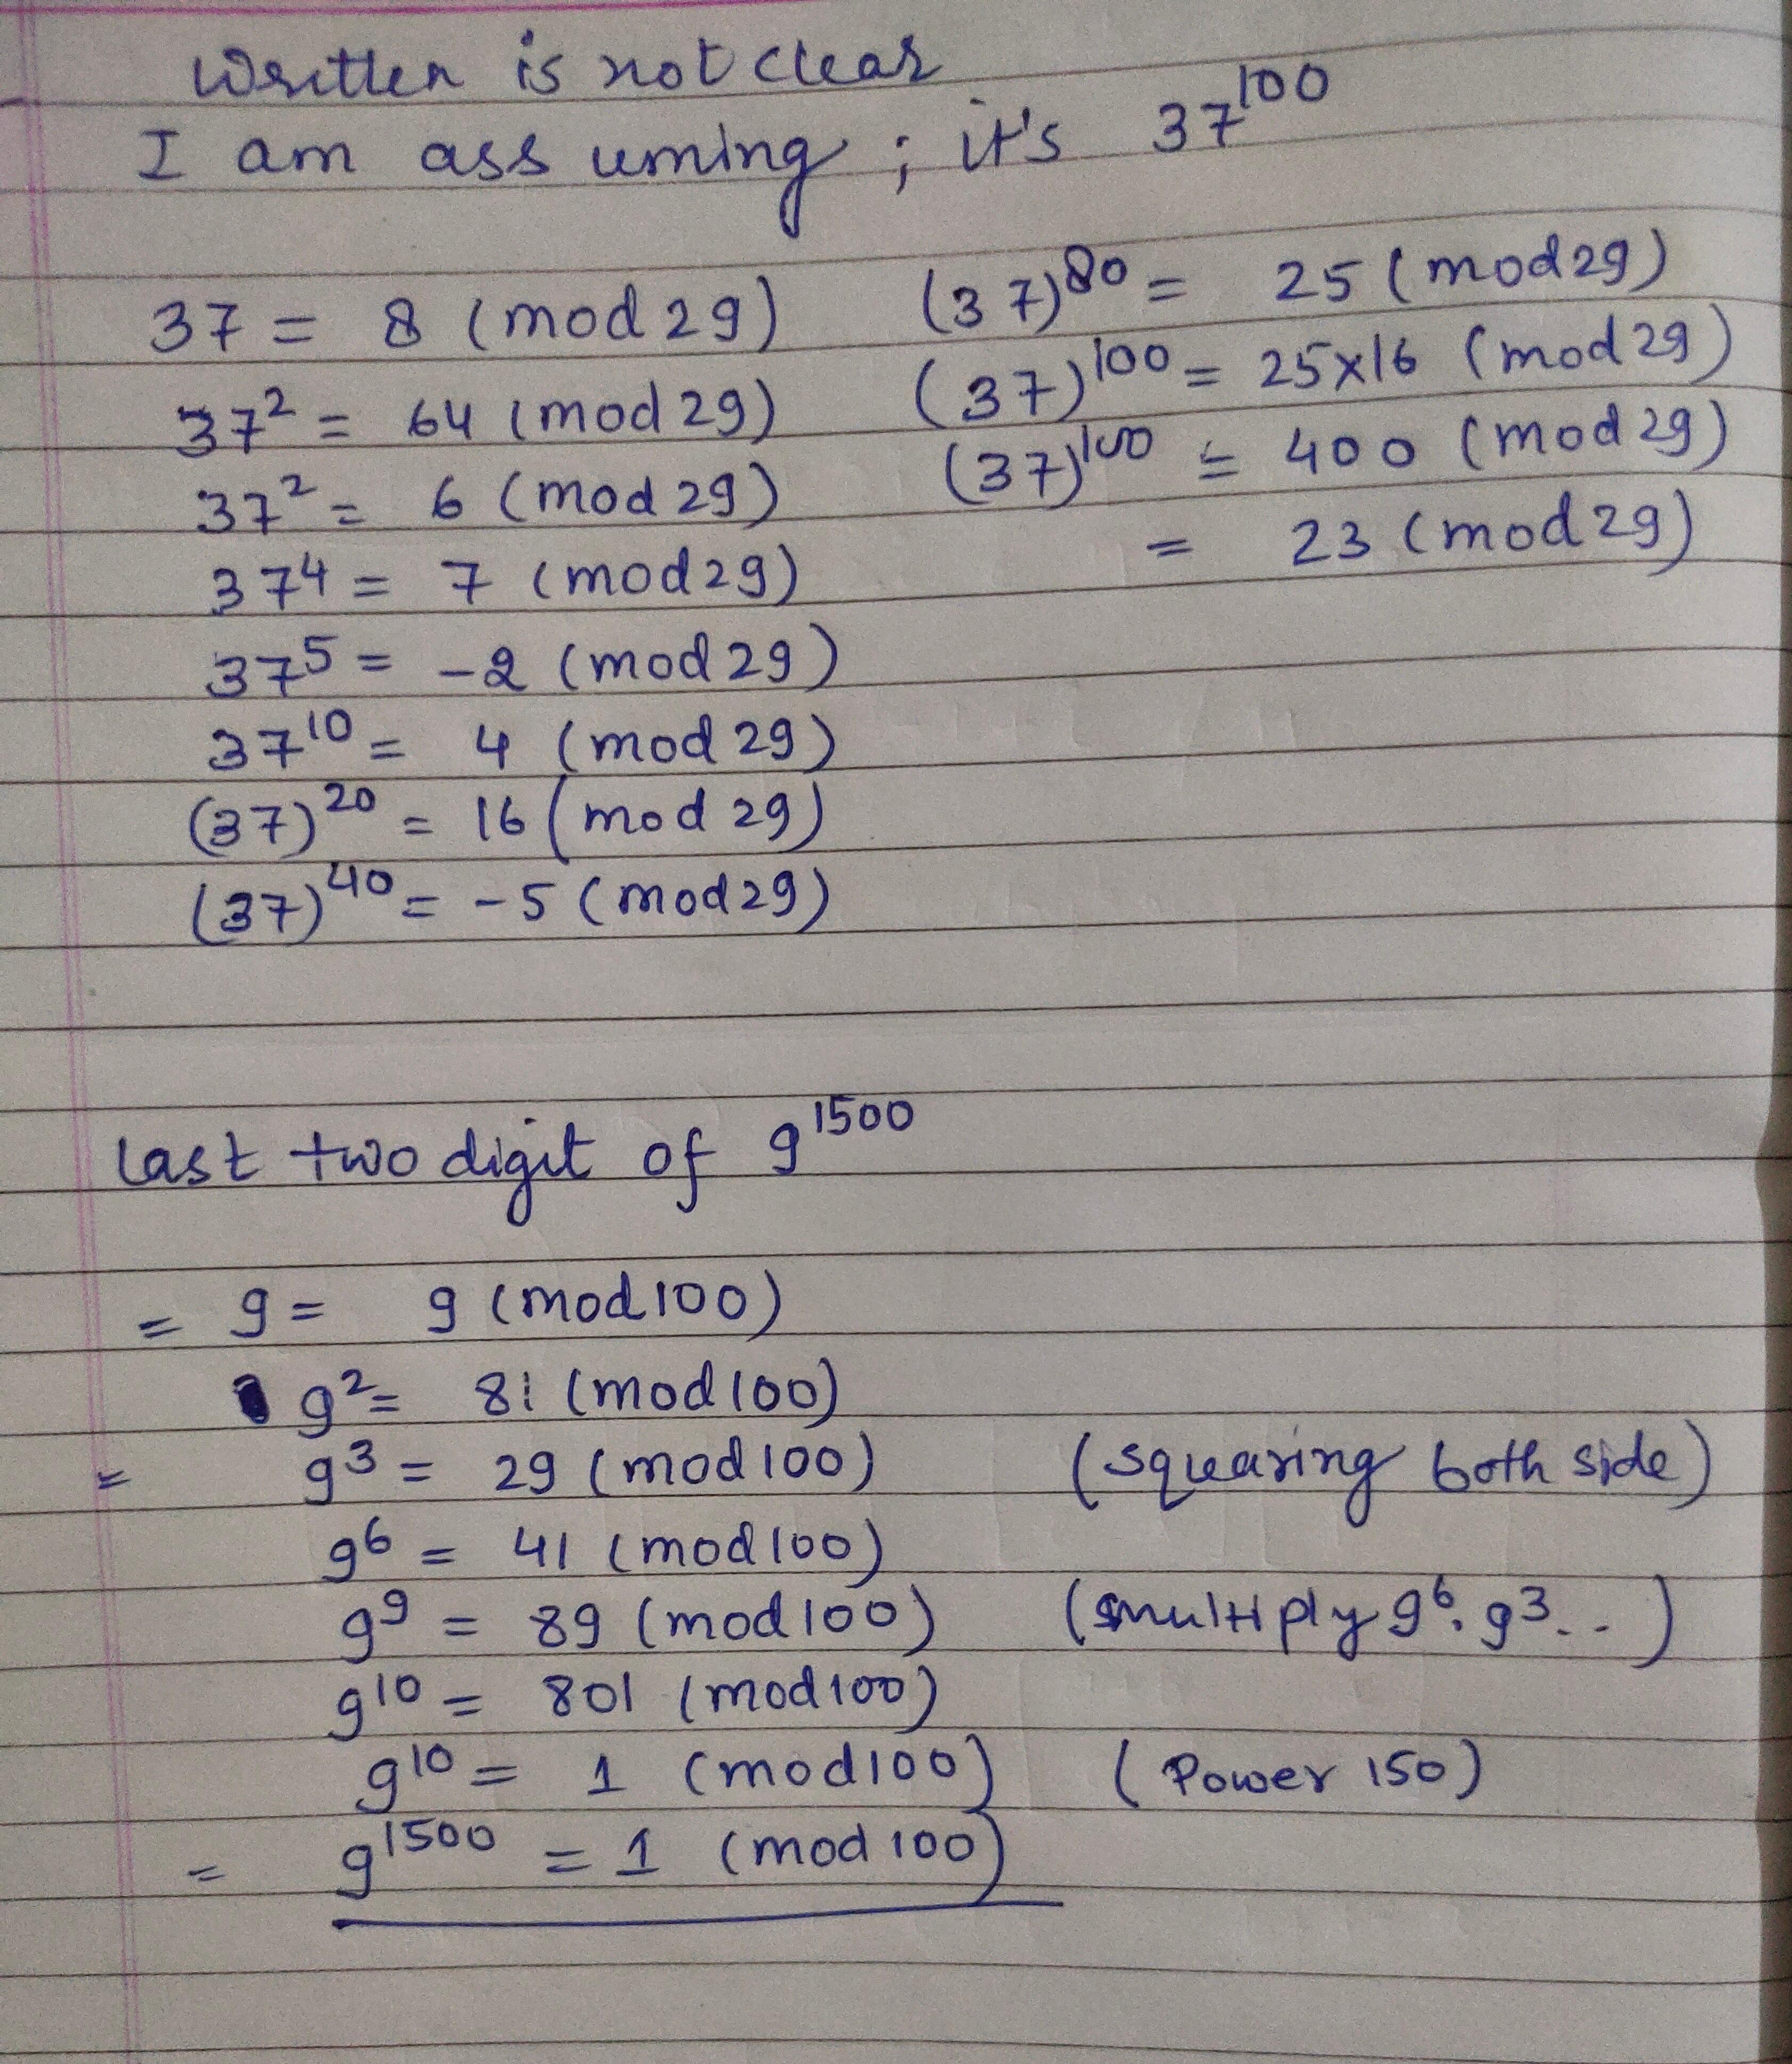 Written is not clear
I am assuming ; it's 37^100
37 = 8 (mod 29)
37^2 = 64 (mod 29)
37^2 = 6 (mod 29)
37^4 = 7 (mod 29)
37^5 = -2 (mod 29)
37^10 = 4 (mod 29)
(37)^20 = 16 (mod 29)
(37)^40 = -5 (mod 29)
(37)^80 = 25 (mod 29)
(37)^100 = 25x16 (mod 29)
(37)^100 = 400 (mod 29)
= 23 (mod 29)
last two digit of 9^1500
= 9 = 9 (mod 100)
9^2 = 81 (mod 100)
= 9^3 = 29 (mod 100) (squaring both side)
9^6 = 41 (mod 100)
9^9 = 89 (mod 100) (multiply 9^6. 9^3..)
9^10 = 801 (mod 100)
9^10 = 1 (mod 100) (Power 150)
= 9^1500 = 1 (mod 100)